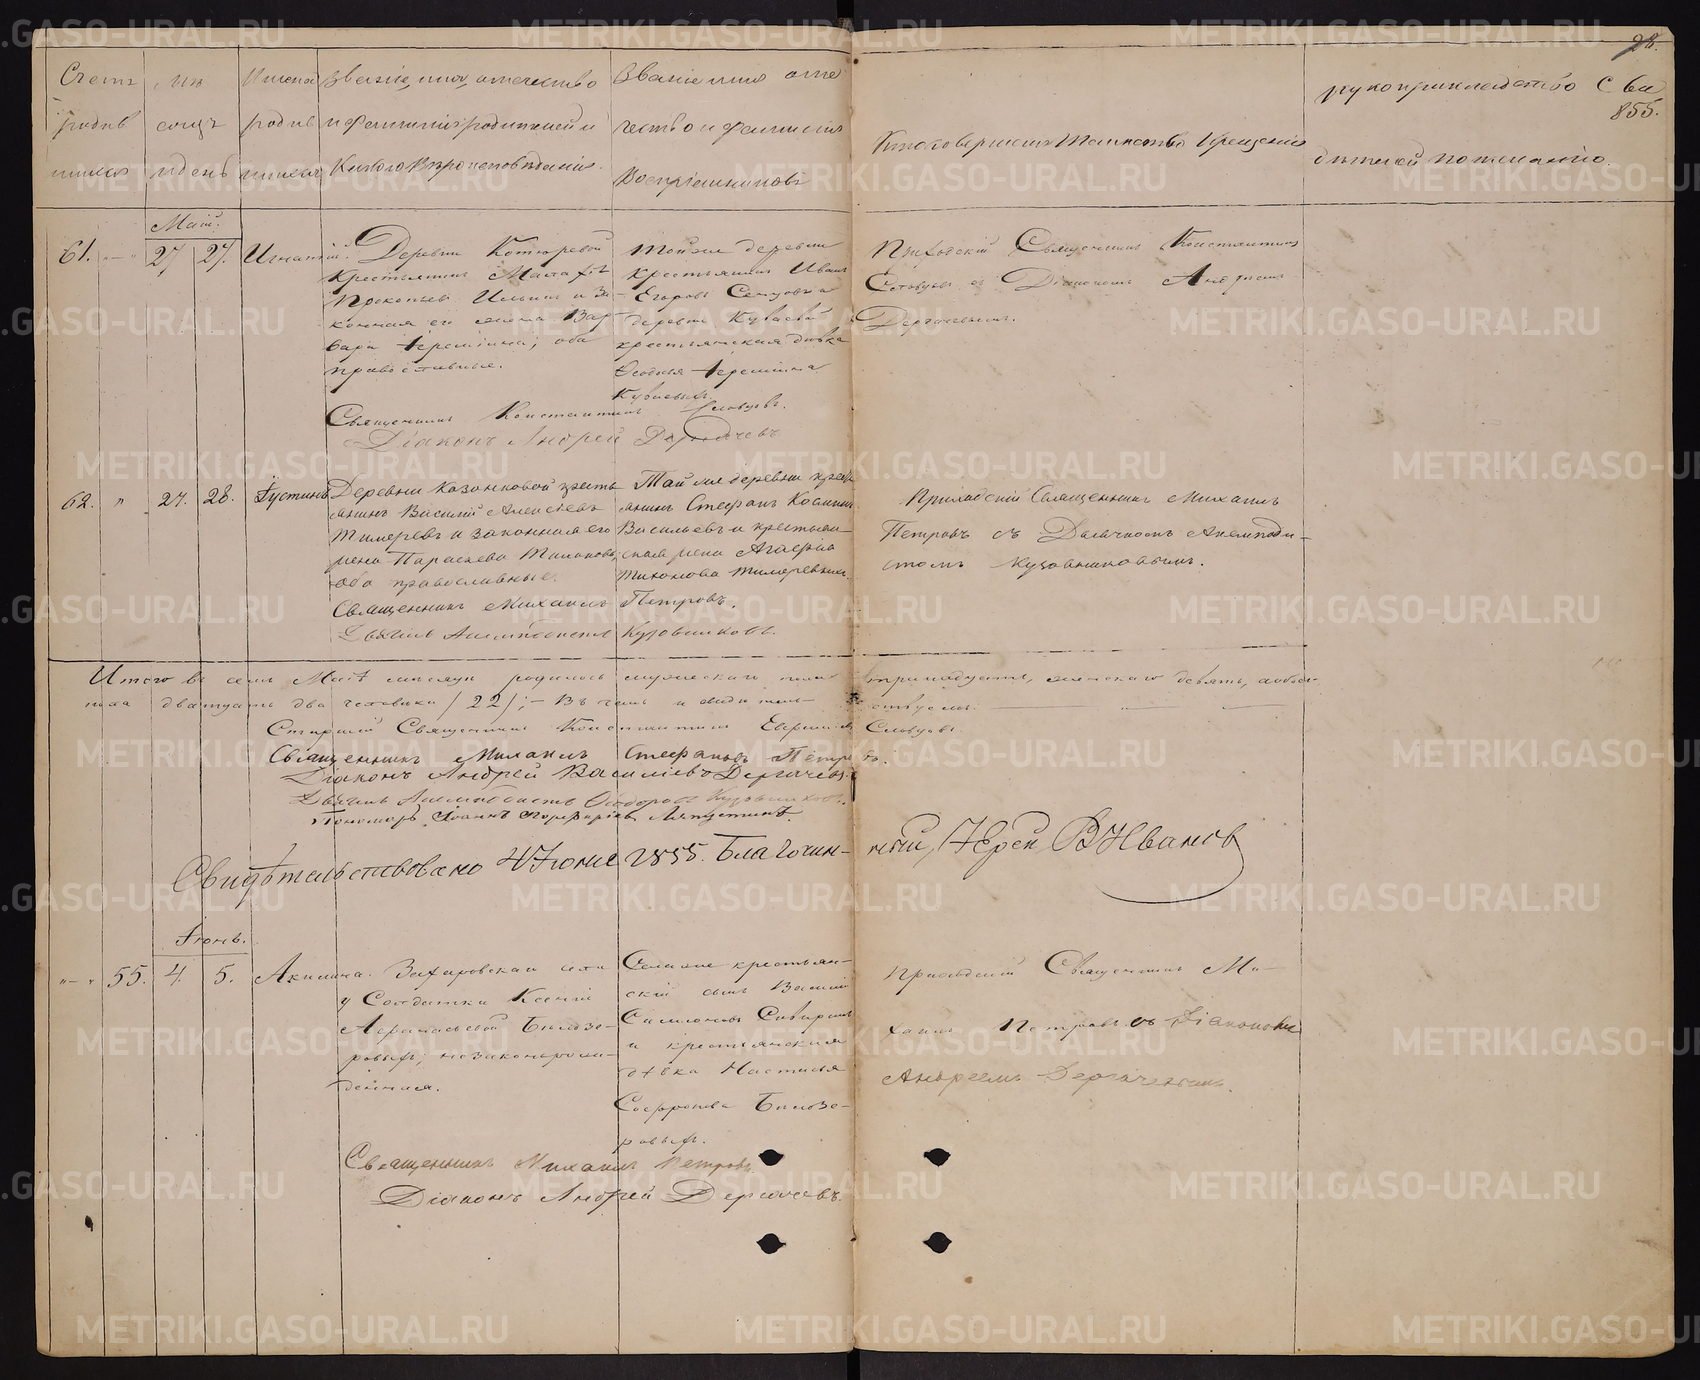 28.
Счетъ
родив
шихся
мц
сяцъ
и день
Имена
родив
шихся
Званіе, имя, отчество
и фамилія родителей и
какого вѣроисповѣданія.
Званіе имя отче
ство и фамилія
воспріемниковъ
Кто совершалъ таинство крещенія
рукоприкладство сви
855.
дѣтелей по желанію.
Май.
61. 27 27. Игнатій.
Деревни
Крестьянинъ
Прокопьевъ Ильинъ и за-
конная его жена Вар-
вара Іереміина; оба
православные.
Тойже деревни
крестьянинъ Иванъ
Егоровъ и
деревни Куваевой
крестьянская дѣвка
Ѳеодосья Іереміина
Куваевыхъ.
Приходскій Священникъ Константинъ
Словцовъ съ Діакономъ Андреемъ
Дергачевымъ.
Священникъ Константинъ Словцовъ.
Діаконъ Андрей Дергачевъ
62. " 27. 28. Іустинъ
Деревни Казанковой кресть
янинъ Василій Алексѣевъ
и законная его
жена Параскева
оба православные.
Той же деревни крест
янинъ Стефанъ Косминъ
Васильевъ и крестьян-
ская жена Агафья
Тихонова
Приходскій Священникъ Михаилъ
Петровъ съ Дьячкомъ Анемподи-
стомъ Кузовниковымъ.
Священникъ Михаилъ Петровъ.
Дьячекъ Анемподистъ Кузовниковъ.
Итого въ семъ Маѣ мѣсяцѣ родилось мужескаго пола тринадцать, женскаго девять, а обоего
пола двадцать два человѣка /22/; – Въ чемъ и свидѣтель- ствуемъ:
Старшій Священникъ Константинъ Словцовъ
Священникъ Михаилъ Стефановъ Петровъ.
Діаконъ Андрей Васильевъ Дергачевъ.
Дьячекъ Анемподистъ Ѳедоровъ Кузовниковъ.
Пономарь Іоаннъ Порфирьевъ Ляпустинъ.
Свидѣтельствовано 4 Іюня 1855. Благочин- ный, Іерей В Ивановъ
Іюнь.
" - " 55. 4. 5. Акилина.
Захаровскаго села
у Солдатки Ксеніи
Афанасьевой Бѣлозе-
ровыхъ; незаконорож-
денная.
Селаже крестьян-
скій сынъ Василій
и крестьянская
дѣвка Настасья
Софронова Бѣлозе-
ровыхъ.
Приходскій Священникъ Ми-
хаилъ Петровъ съ Діакономъ
Андреемъ Дергачевымъ.
Священникъ Михаилъ Петровъ
Діаконъ Андрей Дергачевъ.
METRIKI.GASO-URAL.RU